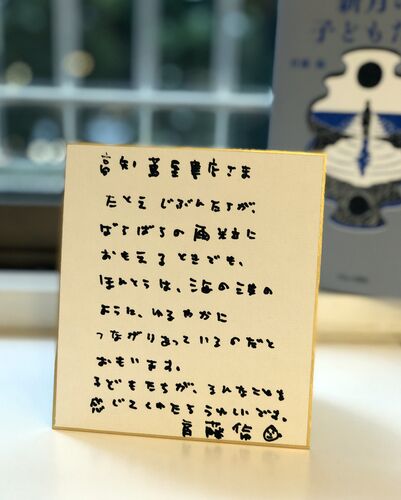 新月の
子どもた
高知 蔦屋書店さま
たとえ じぶんたちが、
ばらばらの雨粒に
おもえる ときでも、
ほんとうは、海の波の
ように、ゆるやかに
つながりあっているのだと
おもいます。
子どもたちが、そんなことを
感じてくれたらうれしいです。
斉藤倫